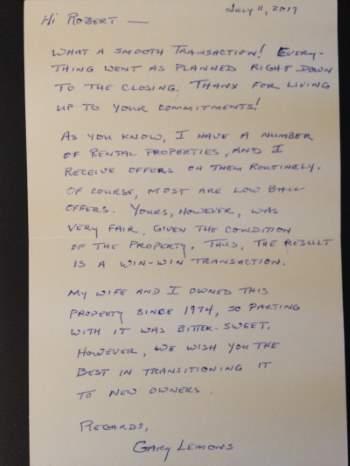 July 11, 2017
Hi Robert —
What a smooth transaction! Every-
thing went as planned right down
to the closing. Thanx for living
up to your commitments!
As you know, I have a number
of rental properties, and I
receive offers on them routinely.
Of course, most are low ball
offers. Yours, however, was
very fair, given the condition
of the property. Thus, the result
is a win-win transaction.
My wife and I owned this
property since 1974, so parting
with it was bitter-sweet.
However, we wish you the
best in transitioning it
to new owners.
Regards,
Gary Lemons